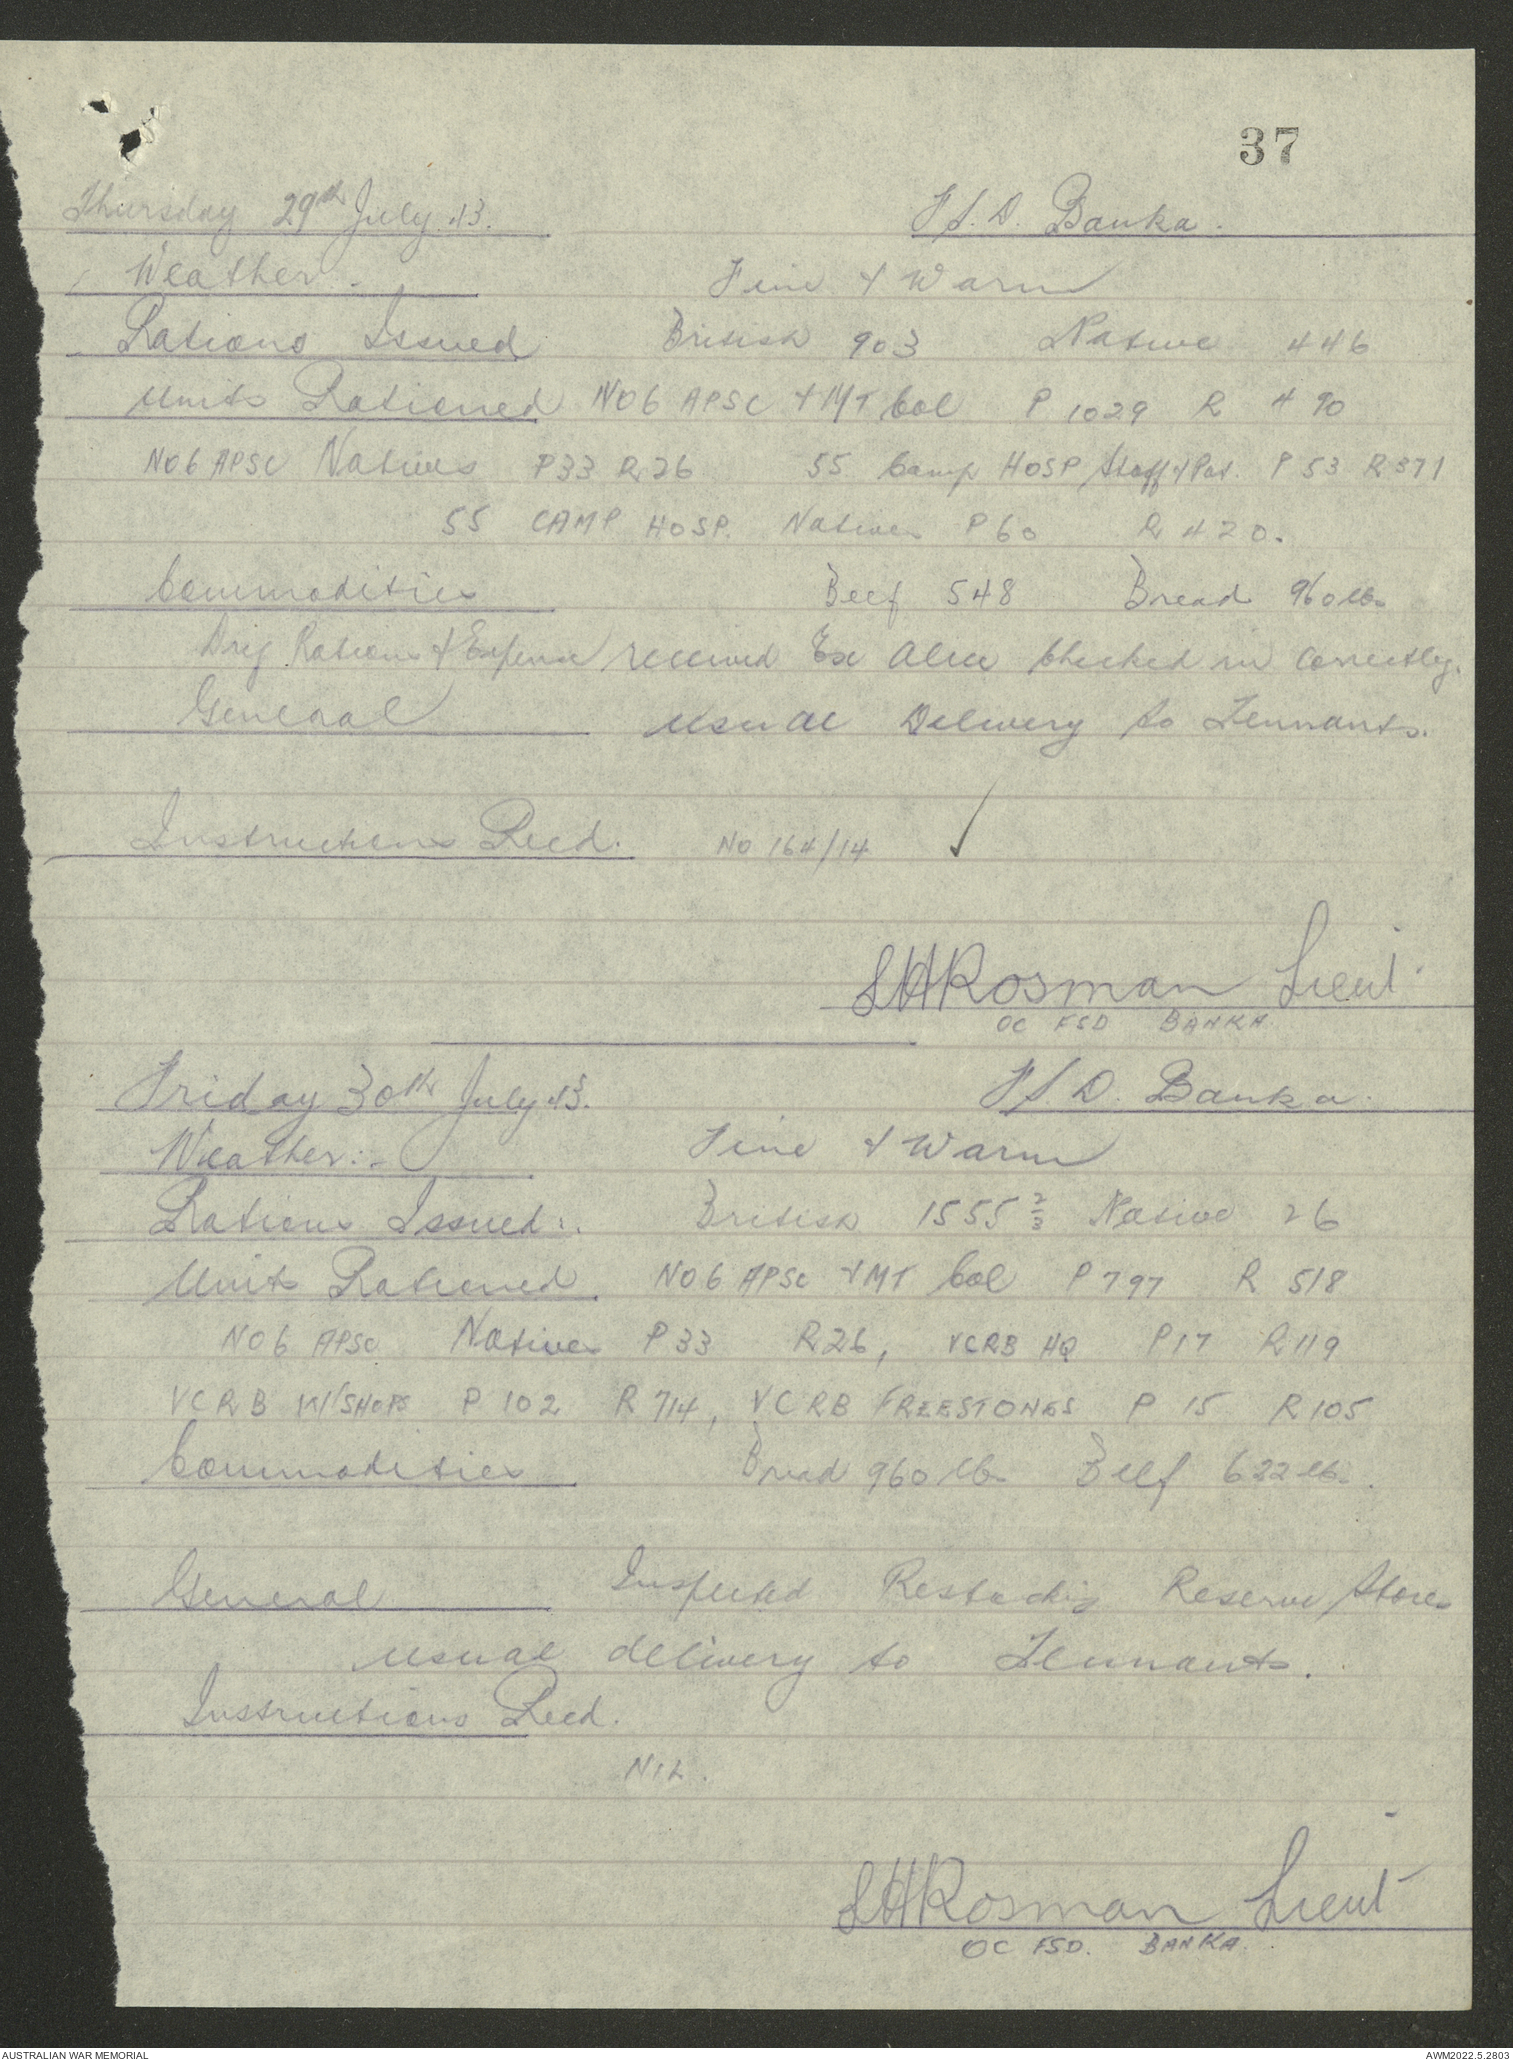 37
Thursday 29th July 43. F S. D. Banka.
Weather. Fine & Warm
Rations Issued British 903 Native 446
Units Rationed NO 6 APSC & MT Col P 1029 R 490
NO 6 APSC Natives P 33 R 26 55 Camp HOSP Staff & Pat. P 53 R 371
55 CAMP HOSP. Natives P 60 R 420.
Commodities Beef 548 Bread 960 lbs
Rations & received Ex Alice Checked in correctly.
General usual Delivery to Tennants.
Instructions Recd. NO 164/14 ✓
SHRosman Lieut
OC FSD BANKA
Friday 30th July 43. F S. D. Banka.
Weather:- Fine & Warm
Rations Issued:. British 1555 2/3 Native 26
Units Rationed NO 6 APSC & MT Col P 797 R 518
NO 6 APSC Natives P 33 R 26, VCRB HQ P 17 R 119
VCRB W/SHOPS P 102 R 714, VCRB FREESTONES P 15 R 105
Commodities Bread 960 lbs Beef 622 lbs.
General Inspected Restacking Reserve Stores
usual delivery to Tennants.
Instructions Recd.
NIL.
SHRosman Lieut
OC FSD. BANKA.
AUSTRALIAN WAR MEMORIAL AWM2022.5.2803